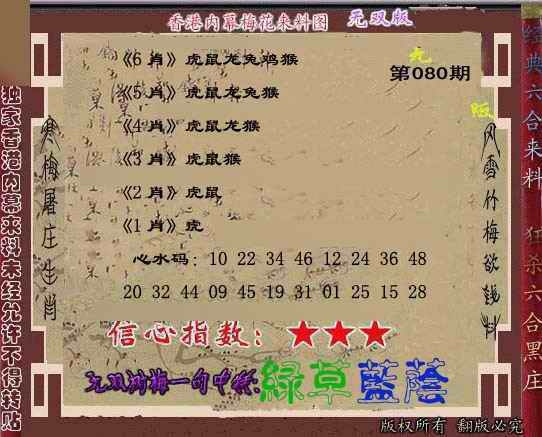 香港内幕梅花来料图 无双版
《6 肖》虎鼠龙兔鸡猴
第080期
《5 肖》虎鼠龙兔猴
《4 肖》虎鼠龙猴
《3 肖》虎鼠猴
《2 肖》虎鼠
《1 肖》虎
心水码：10 22 34 46 12 24 36 48
20 32 44 09 45 19 31 01 25 15 28
信心指数：★★★
绿草蓝荫
版权所有 翻版必究
独家香港内幕来料未经允许不得转贴
寒梅屠庄生肖
风雪竹梅欲钱料
经典六合来料
狂杀六合黑庄